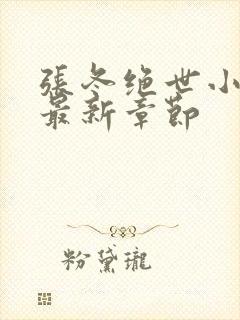 張冬绝世小
最新章節
粉黛瓏